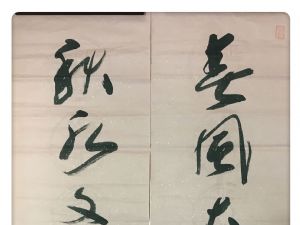 春風大
秋水文